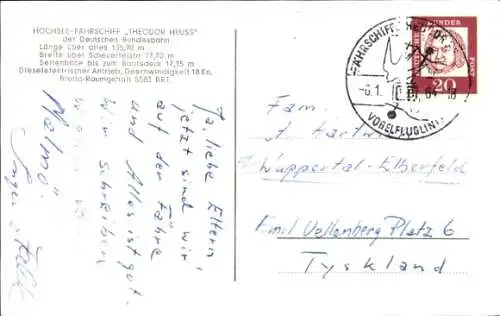 HOCHSEE-FÄHRSCHIFF „THEODOR HEUSS"
der Deutschen Bundesbahn
Länge über alles 135,90 m
Breite über Scheuerleiste 17,70 m
Seitenhöhe bis zum Bootsdeck 17,15 m
Dieselelektrischer Antrieb, Geschwindigkeit 18 Kn.
Brutto-Raumgehalt 5583 BRT.
Ja, liebe Eltern,
jetzt sind wir
auf der Fähre
und Alles ist gut.
beim Schreiben
waren wir
Malmö.
FÄHRSCHIFF
-6.1. 64-18
VOGELFLUGLINIE
DEUTSCHE BUNDESPOST
20
Fam.
A. Hartwi
Wuppertal-Elberfeld
Emil Vollenberg Platz 6
Tyskland